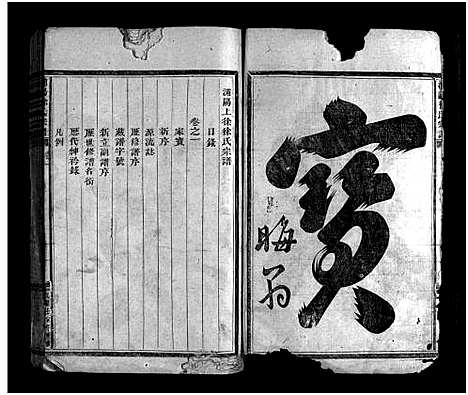 寶
晦翁
上徐徐氏宗譜
目錄
卷之一
家寶
新序
源流誌
歷修譜序
藏譜字號
新立副譜序
歷世修譜名銜
歷代紳衿錄
凡例